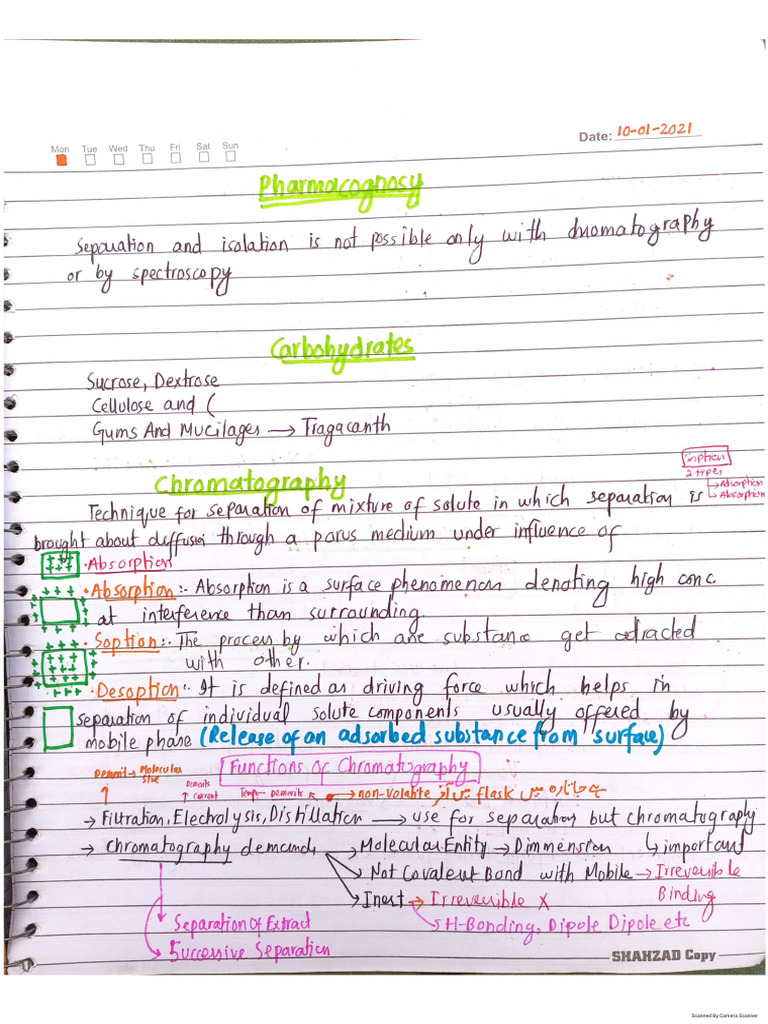 Date: 10-01-2021
Mon Tue Wed Thu Fri Sat Sun
Pharmacognosy
Separation and isolation is not possible only with chromatography
or by spectroscopy
Carbohydrates
Sucrose, Dextrose
Cellulose and (
Gums And Mucilages → Tragacanth
Soption
2 types
Adsorption
Absorption
Chromatography
Technique for separation of mixture of solute in which separation is
brought about diffusion through a porus medium under influence of
• Absorption
• Absorption :- Absorption is a surface phenomenon denoting high conc
at interference than surrounding.
• Soption :- The process by which one substance get attracted
with other.
• Desoption :- It is defined as driving force which helps in
separation of individual solute components usually offered by
mobile phase (Release of an adsorbed substance from surface)
Functions of Chromatography
Demerit → Molecular size
Demerits ↑ current
Temp Demerits
→ non-volatile آر میں flask میں جاتا ہے
→ Filtration, Electrolysis, Distillation → use for separation but chromatography
important
→ Chromatography demands → Molecular Entity → Dimmension
Not Covalent Bond with Mobile → Irreversible Binding
Inert → Irreversible X
H-Bonding, Dipole Dipole etc
Separation of Extract
Successive Separation
SHAHZAD Copy
Scanned By Camera Scanner